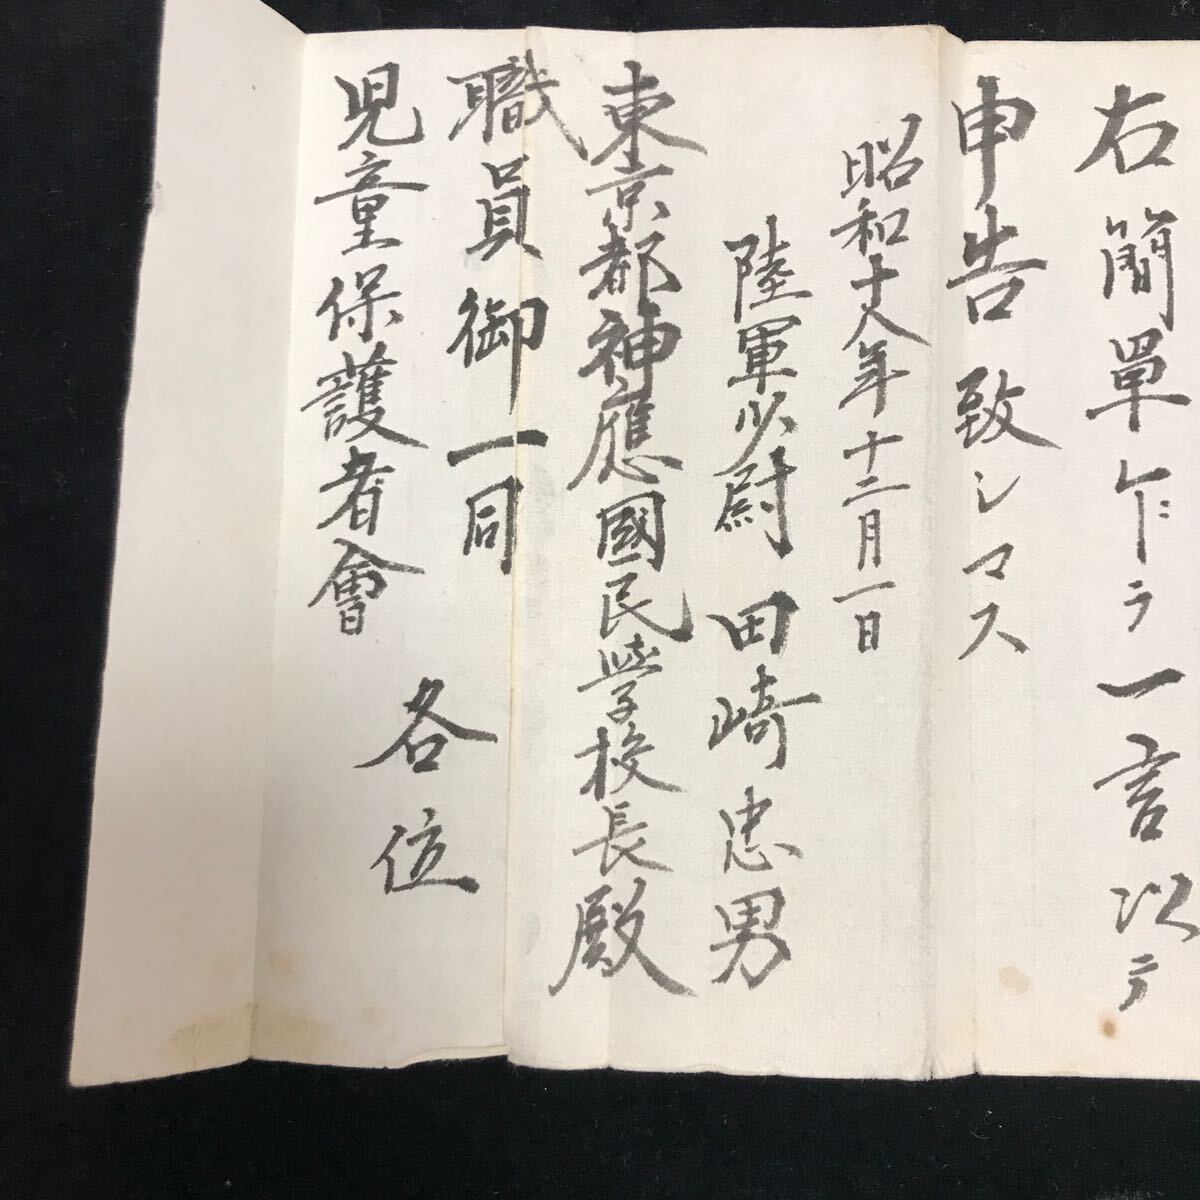 右簡單乍ラ一言以テ
申告致シマス
昭和十八年十二月一日
陸軍少尉 田崎忠男
東京都神應國民学校長殿
職員御一同
児童保護者會
各位